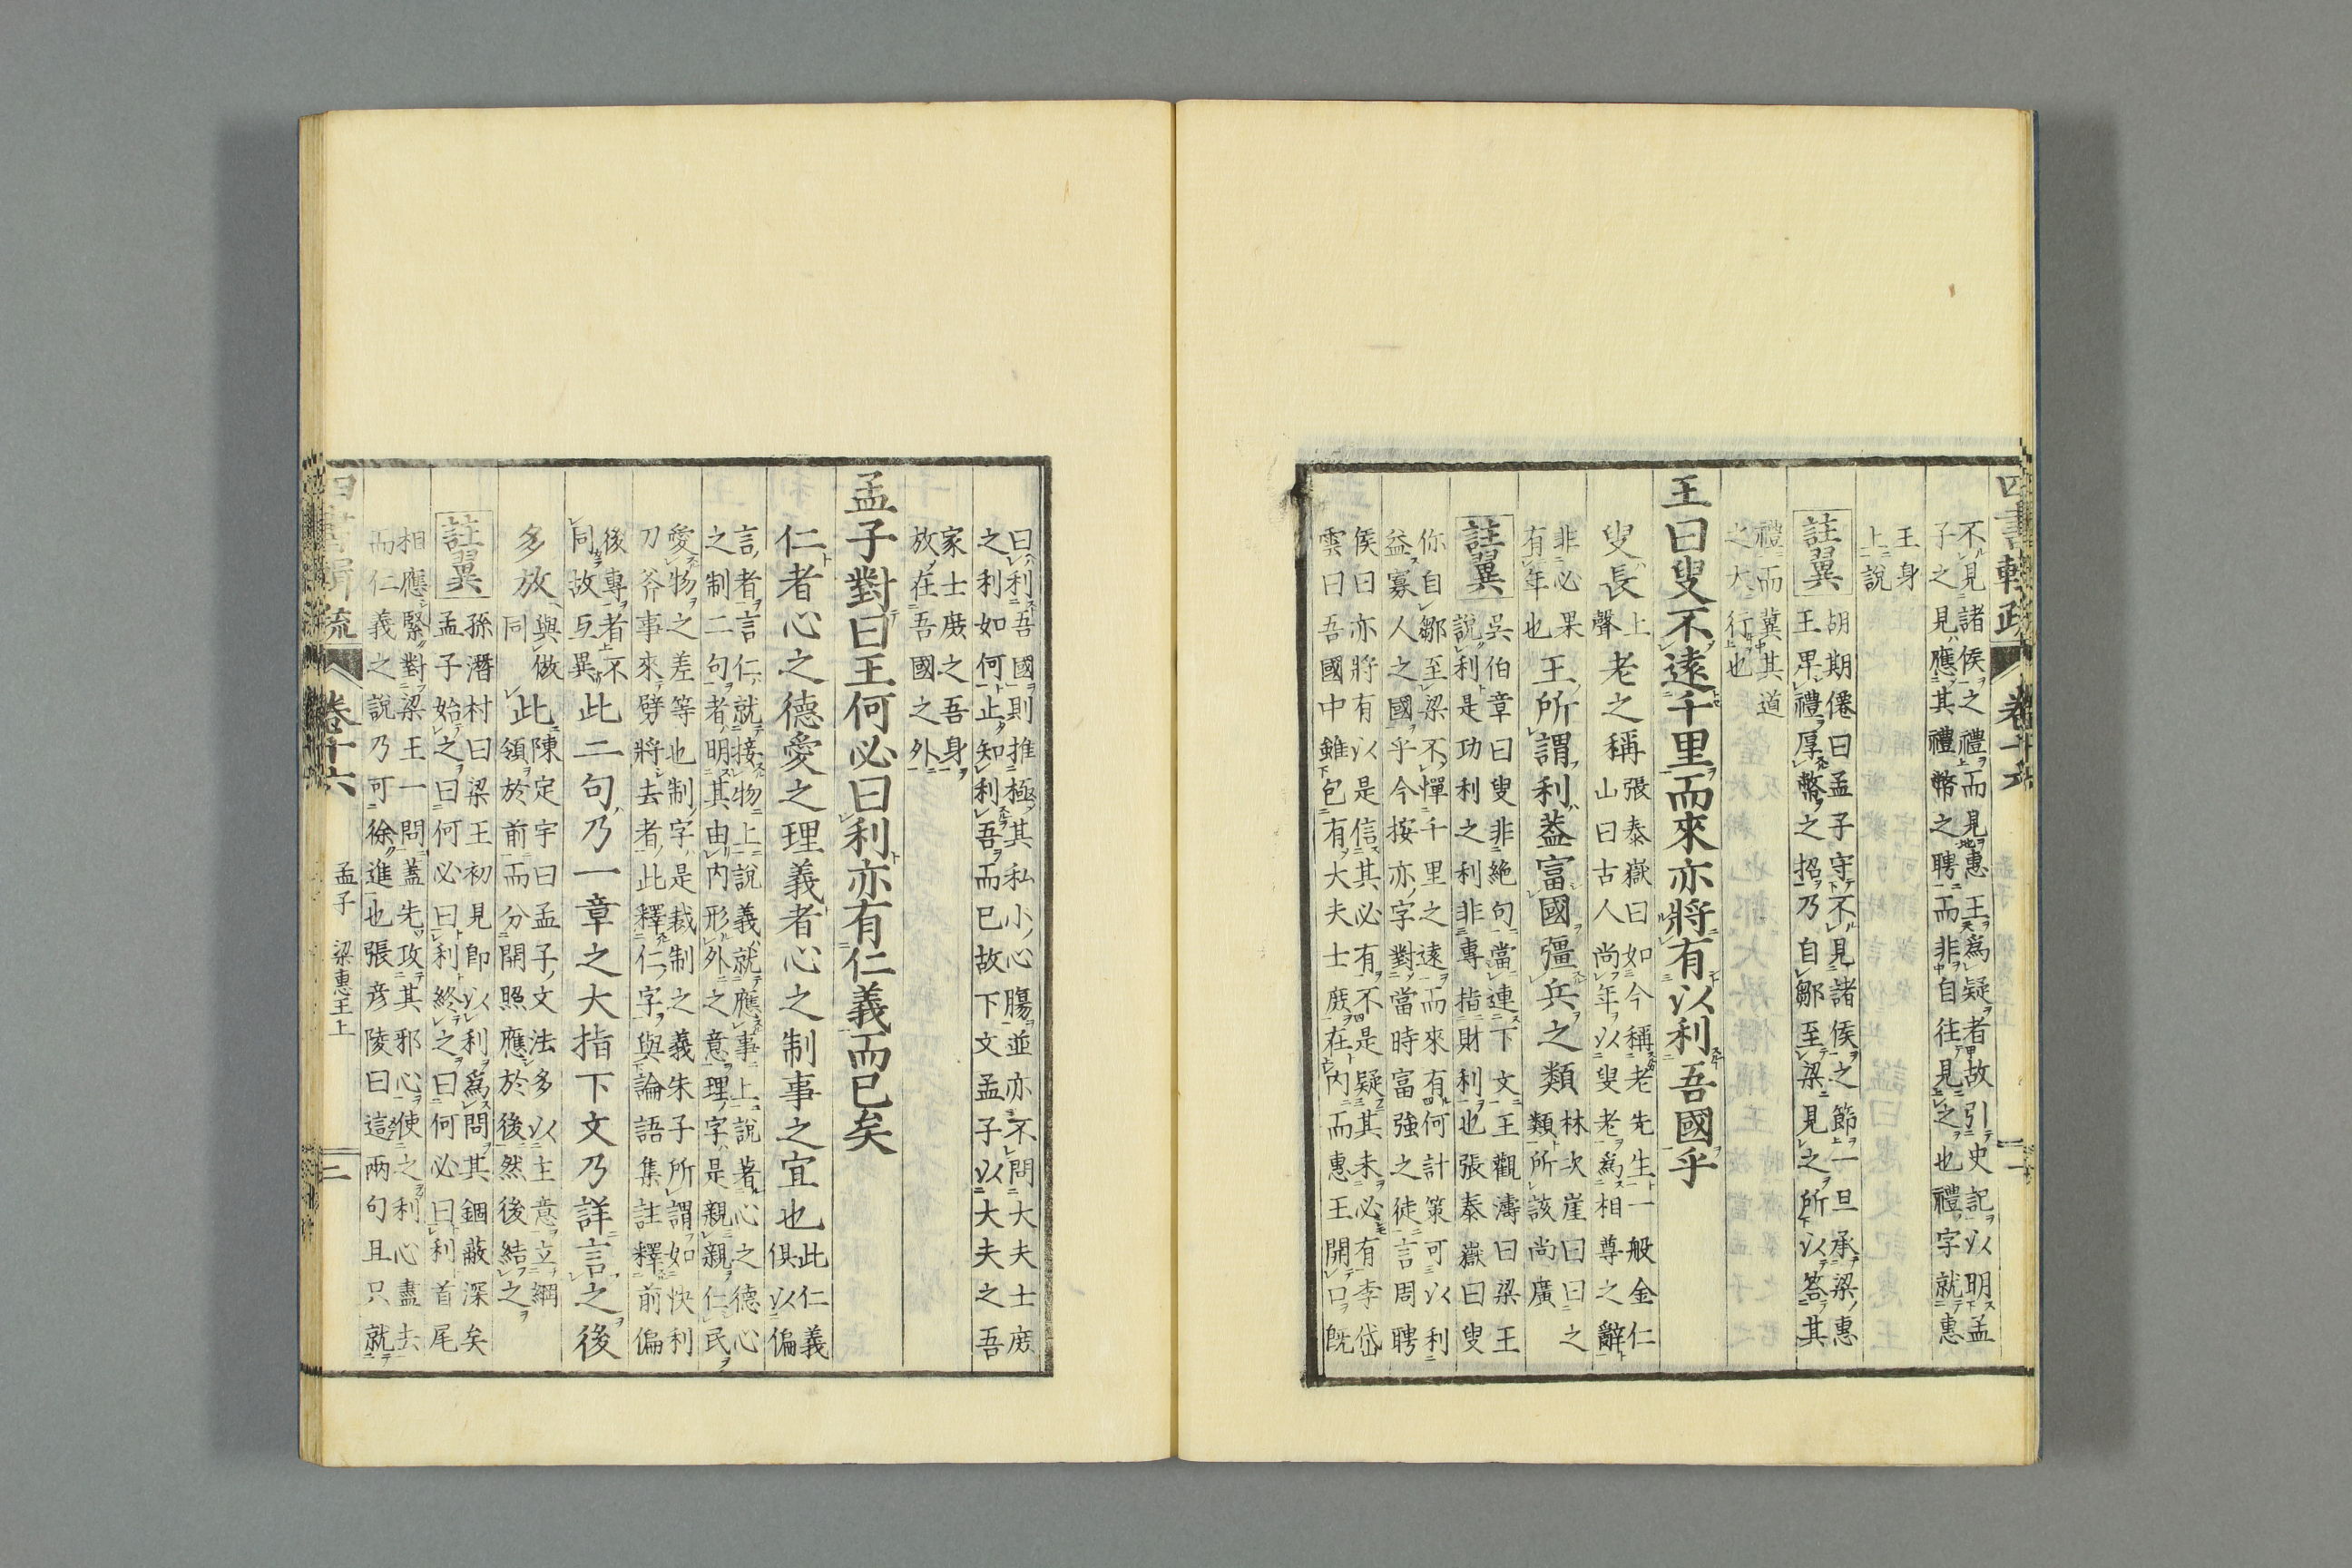 不見諸侯之禮而見惠王爲疑者故引史記以明孟
子之見應其禮幣之聘而非自往見之也禮字就惠
王身
上說
註翼
胡期僊曰孟子守不見諸侯之節一旦承梁惠
王卑禮厚幣之招乃自鄒至梁見之所以答其
禮而冀其道
之大行也
王曰叟不遠千里而來亦將有以利吾國乎
叟長上聲老之稱張泰嶽曰如今稱老先生一般金仁
山曰古人尚年以叟老爲相尊之辭
非必果
有年也
王所謂利蓋富國彊兵之類林次崖曰曰之
類所該尚廣
註翼
吳伯章曰叟非絶句當連下文王觀濤曰梁王
說利是功利之利非專指財利也張泰嶽曰叟
你自鄒至梁不憚千里之遠而來有何計策可以利
益寡人之國乎今按亦字對當時富強之徒言周聘
侯曰亦將有以是信其必有不是疑其未必有李岱
雲曰吾國中雖包有大夫士庻在内而惠王開口旣
四書輯疏
卷十六
曰利吾國則推極其私小心膓並亦不問大夫士庻
之利如何止知利吾而已故下文孟子以大夫之吾
家士庻之吾身
放在吾國之外
孟子對曰王何必曰利亦有仁義而已矣
仁者心之德愛之理義者心之制事之宜也此仁義
俱以偏
言者言仁就接物上說義就應事上說著心之德心
之制二句者明其由内形外之意理字是親親仁民
愛物之差等也制字是裁制之義朱子所謂如快利
刀斧事來劈將去者此釋仁字與論語集註釋前偏
後專者不
同故互異
此二句乃一章之大指下文乃詳言之後
多放
與做
同
此
陳定宇曰孟子文法多以主意立綱
領於前而分開照應於後然後結之
註翼
孫潛村曰梁王初見即以利爲問其錮蔽深矣
孟子始之曰何必曰利終之曰何必曰利首尾
相應緊對梁王一問蓋先攻其邪心使之利心盡去
而仁義之說乃可徐進也張彦陵曰這兩句且只就
卷十六
孟子
梁惠王上
三